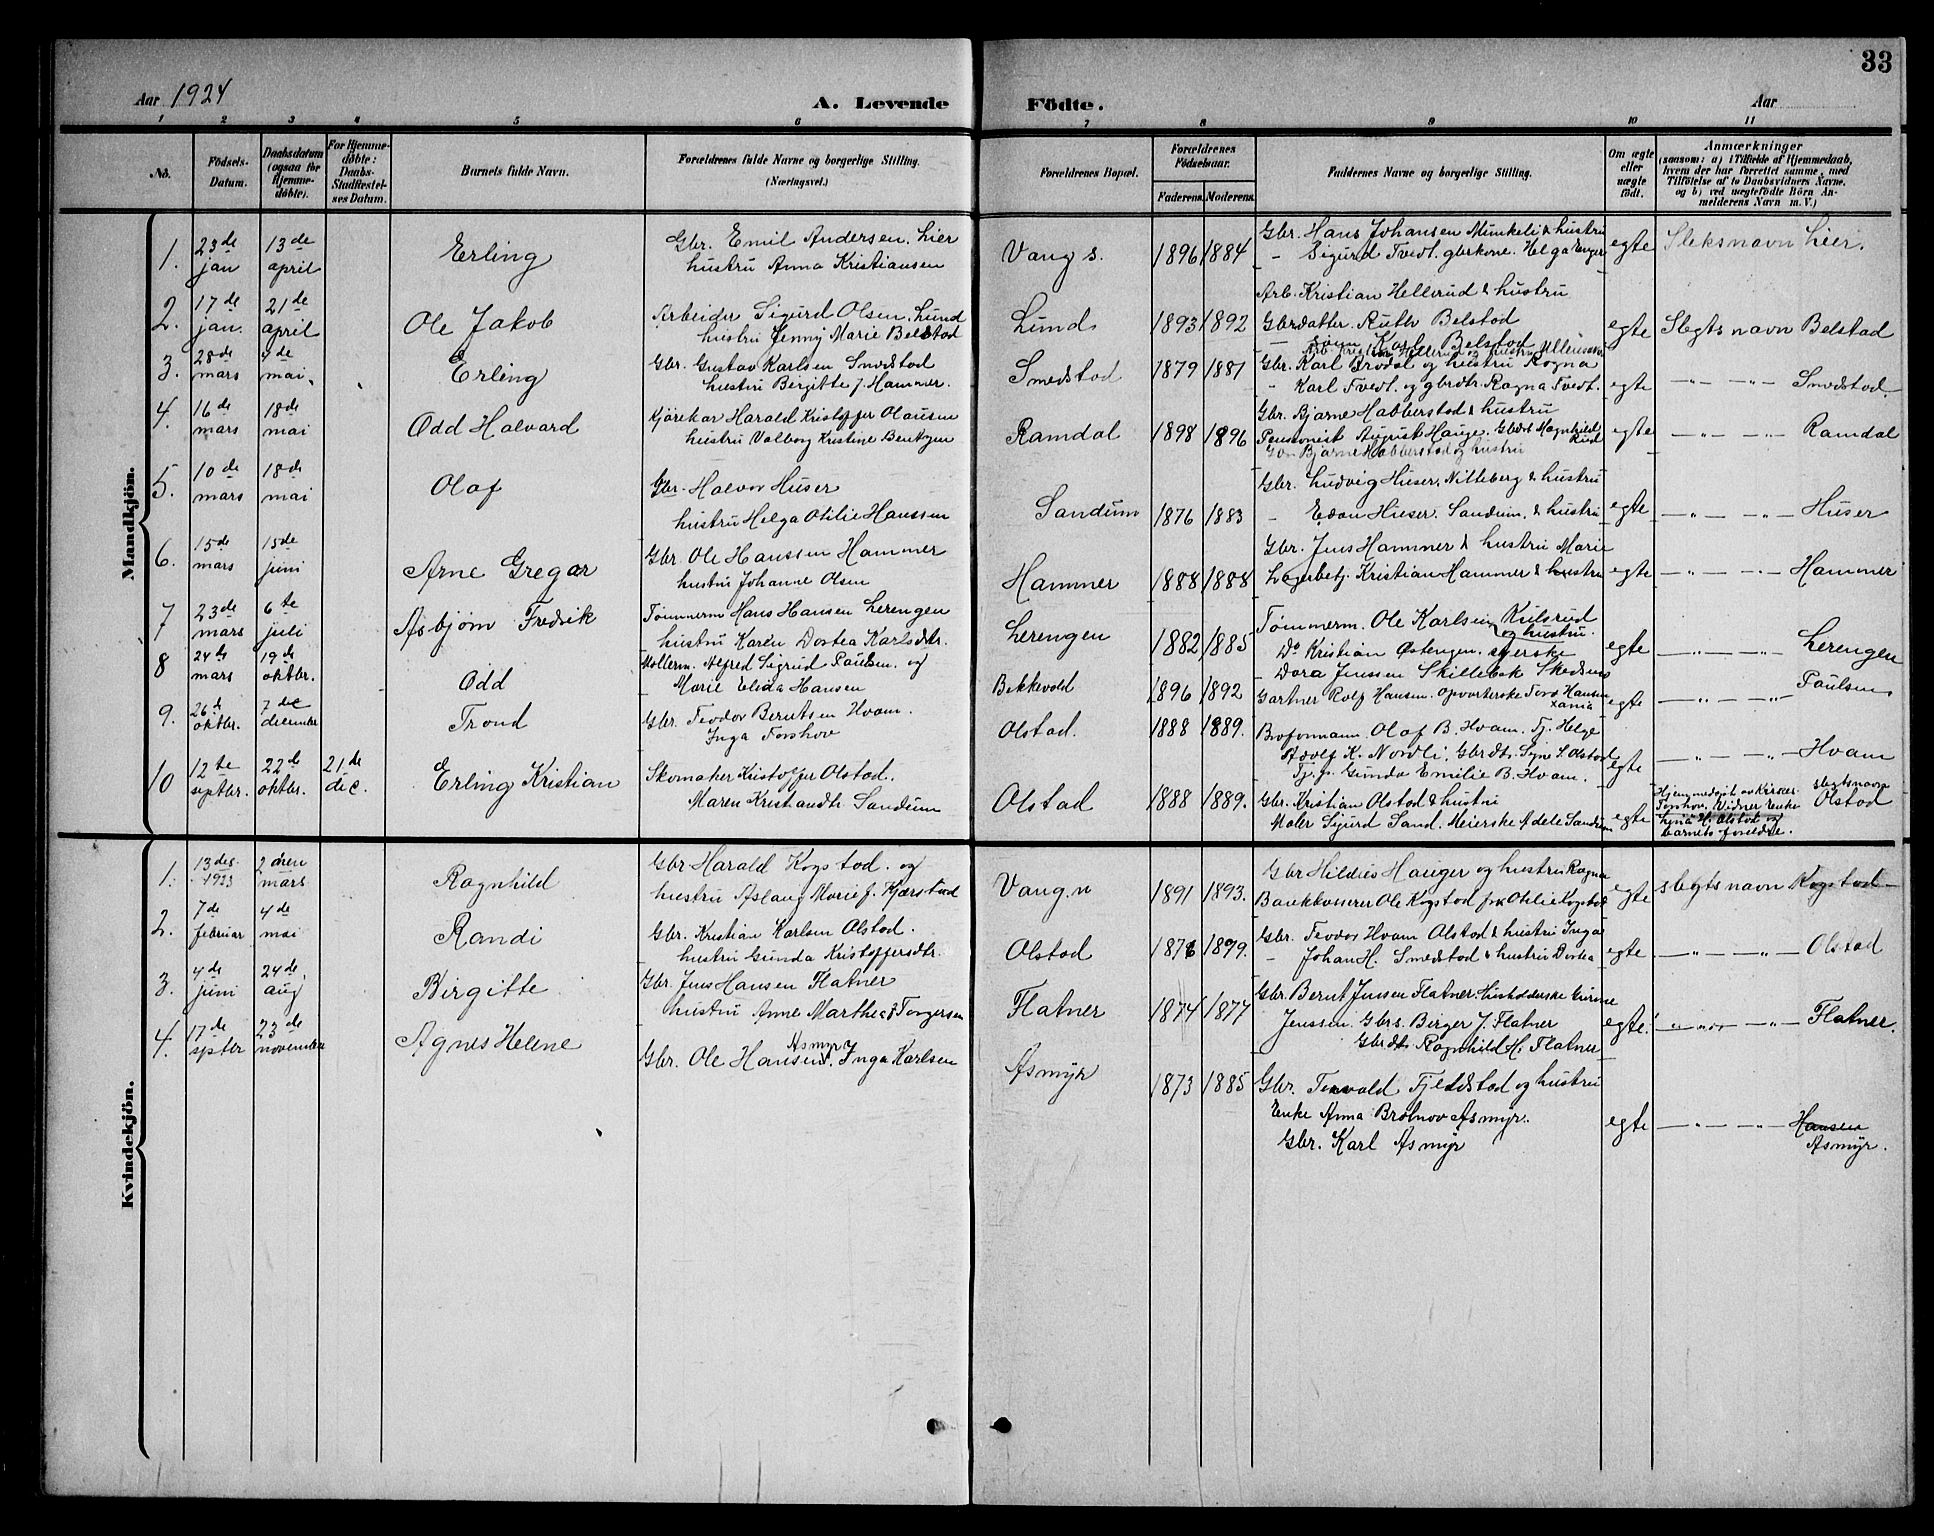 33
Aar 1924
A. Levende
Födte.
Aar
1 2 3 4 5 6 7 8 9 10 11
No.
Födsels-
Datum.
Daabsdatum
(ogsaa for
Hjemme-
døbte).
For Hjemme-
døbte:
Daabs-
Stadfæstel-
ses Datum.
Barnets fulde Navn.
Forældrenes fulde Navne og borgerlige Stilling.
(Næringsvei.)
Forældrenes Bopæl.
Forældrenes
Födselsaar.
Faderens. Moderens.
Faddernes Navne og borgerlige Stilling.
Om ægte
eller
uægte
født.
Anmærkninger
(saasom: a) i Tilfælde af Hjemmedaab,
hvem der har forrettet samme, med
Tilføielse af to Daabsvidners Navne,
og b) ved uægtefødte Börn An-
melderens Navn m. V.)
Mandkjön.
1. 23de jan 13de april Erling
Gbr. Emil Andersen. Lier
hustru Anna Kristiansen
Vang s. 1896 1884
Gbr. Hans Johansen Munkeli & hustru
- Sigurd Tvedt. gbrkone. Helga Enger
egte Sleksnavn Lier.
2. 17de jan. 21de april Ole Jakob
Arbeider Sigurd Olsen. Lund
hustru Jenny Marie Belstad
Lund 1893 1892
Arb. Kristian Hellerud & hustru
Gbrdatter. Ruth Belstad
- sønn Karl Belstad
egte Slegtsnavn Belstad
3. 28de mars 4de mai. Erling
Gbr. Gustav Karlsen Smedstad
hustru Birgitte J. Hammer.
Smedstad 1879 1881
Gbr. Karl Brodal og hustru Ragna
- Karl Tvedt. og gbrdtr. Ragna Tvedt.
egte -"- -"- Smedstad.
4. 16de mars 18de mai Odd Halvard
Kjørekar Harald Kristoffer Olausen
hustru Valborg Kristine Bentzen
Ramdal 1898 1896
Gbr. Bjarne Habberstad & hustru
Pensionist August Hauge. Gbdt Magnhild Rud
Gbr Bjarne Habberstad og hustru
egte -"- -"- Ramdal
5. 10de mars 18de mai Olaf
Gbr. Halvor Huser
hustru Helga Otilie Hanssen
Sandum 1876 1883
Gbr. Ludvig Huser, Nilleberg & hustru
- Edon Huser. Sandum. & hustru
egte -"- -"- Huser
6. 15de mars 15de juni Arne Gregar
Gbr Ole Hanssen Hammer
hustru Johanne Olsen
Hammer 1888 1888
Gbr. Jens Hammer & hustru Marie
Lagerbetj. Kristian Hammer & hustru
egte -"- -"- Hammer
7 23de mars 6te juli Asbjørn Fredrik
Tømmerm Hans Hansen Lerengen
hustru Karen Dortea Karlsdtr.
Lerengen 1882 1885
Tømmerm. Ole Karlsen Kulsrud
og hustru.
Do Kristian Østengen. syerske
Dora Jenssen Skillebek Skedsmo
egte -"- -"- Lerengen
8 24de mars 19de oktbr. Odd
Møllerm. Alfred Sigrud Paulsen. og
Marie Elida Hansen
Bekkevold 1896 1892
Gartner Rolf Hansen. Opvarterske Tora Hansen
Xania
egte -"- -"- Paulsen
9. 26de oktbr. 7de december Trond
Gbr. Teodor Berntsen Hvam.
Inga Torshov
Olstad. 1888 1889.
Broformann. Olaf B. Hvam. Tj. Helge
Rdvlf K. Nordli, Gbrdtr. Signe S. Olstad
Tj. p. Gunda Emilie B. Hvam.
egte -"- -"- Hvam
10 12te septbr. 22de oktbr. 21de dec. Erling Kristian
Skomaker Kristoffer Olstad.
Maren Kristiandtr. Sandum
Olstad 1888 1889.
Gbr. Kristian Olstad & hustru
Maler Sigurd Sand. Meierske Adele Sandum
egte Hjemmedøpt av Kirkes. slegtsnavn
Torshov. Vidner Enke Olstad
Lina H. Olstad og
barnets foreldre.
Kvindekjön.
1. 13 des. 1923 2dren mars Ragnhild
Gbr Harald Kogstad. og
hustru Aslaug Marie J. Kjærstad
Vang. n 1891 1893.
Gbr Hildius Hauger og hustru Ragna
Bankkasserer Ole Kogstad frk Otilie Kogstad
egte slegtsnavn Kogstad
2. 7de februar 4de mai Randi
Gbr. Kristian Karlsen Olstad.
hustru Gunda Kristoffersdtr.
Olstad 1876 1879.
Gbr. Teodor Hvam Olstad & hustru Inga
- Johan H. Smedstad & hustru Dortea
egte -"- -"- Olstad
3. 4de juni 24de aug Birgitte
Gbr. Jens Hansen Flatner
hustru Anne Marthea Torgersen
Flatner 1874 1877
Gbr. Bernt Jensen Flatner. Husholderske Gurine
Jenssen. Gbrs. Birger J. Flatner
Gbrdtr. Ragnhild H. Flatner
egte. -"- -"- Flatner.
4. 17de spter 23de november Agnes Helene
Asmyr
Gbr. Ole Hansen. Inga Karlsen
Asmyr 1873 1885
Gbr. Torvald Fjeldstad og hustru
Enke Anna Brobnov Asmyr.
Gbr. Karl Asmyr
egte -"- -"- Hansen
Asmyr.